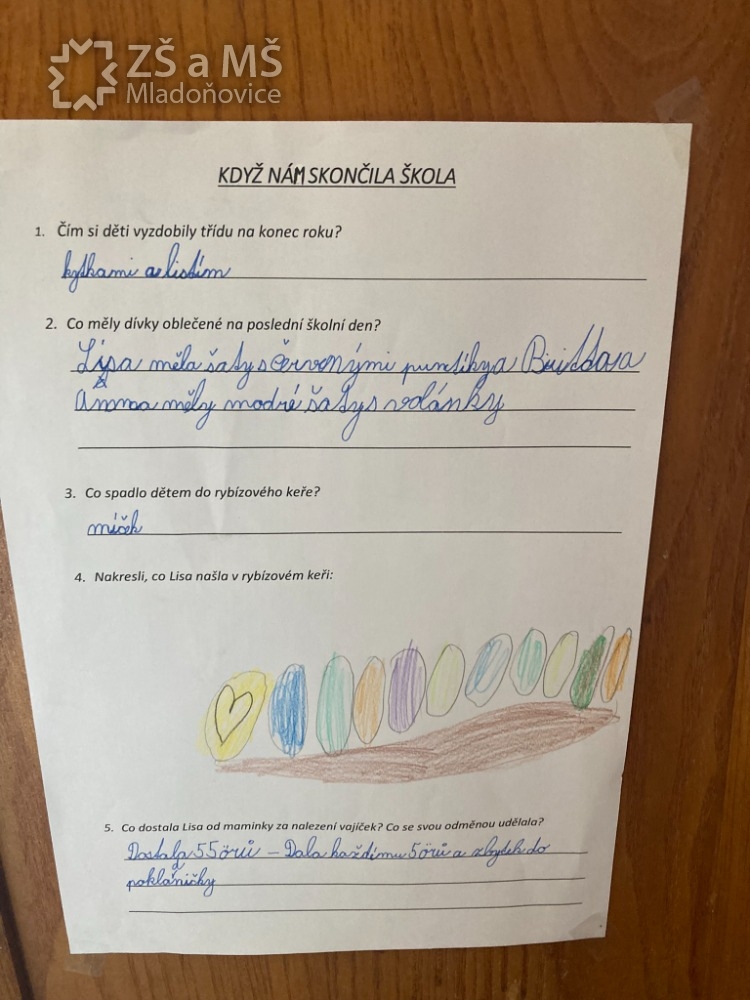 ZŠ a MŠ
Mladoňovice
KDYŽ NÁM SKONČILA ŠKOLA
1. Čím si děti vyzdobily třídu na konec roku?
kytkami a listím
2. Co měly dívky oblečené na poslední školní den?
Lisa měla šaty s červenými puntíky a Britta a
Anna měly modré šaty s volánky
3. Co spadlo dětem do rybízového keře?
míček
4. Nakresli, co Lisa našla v rybízovém keři:
5. Co dostala Lisa od maminky za nalezení vajíček? Co se svou odměnou udělala?
Dostala 55örů – Dala každímu 5örů a zbytek do
pokladničky